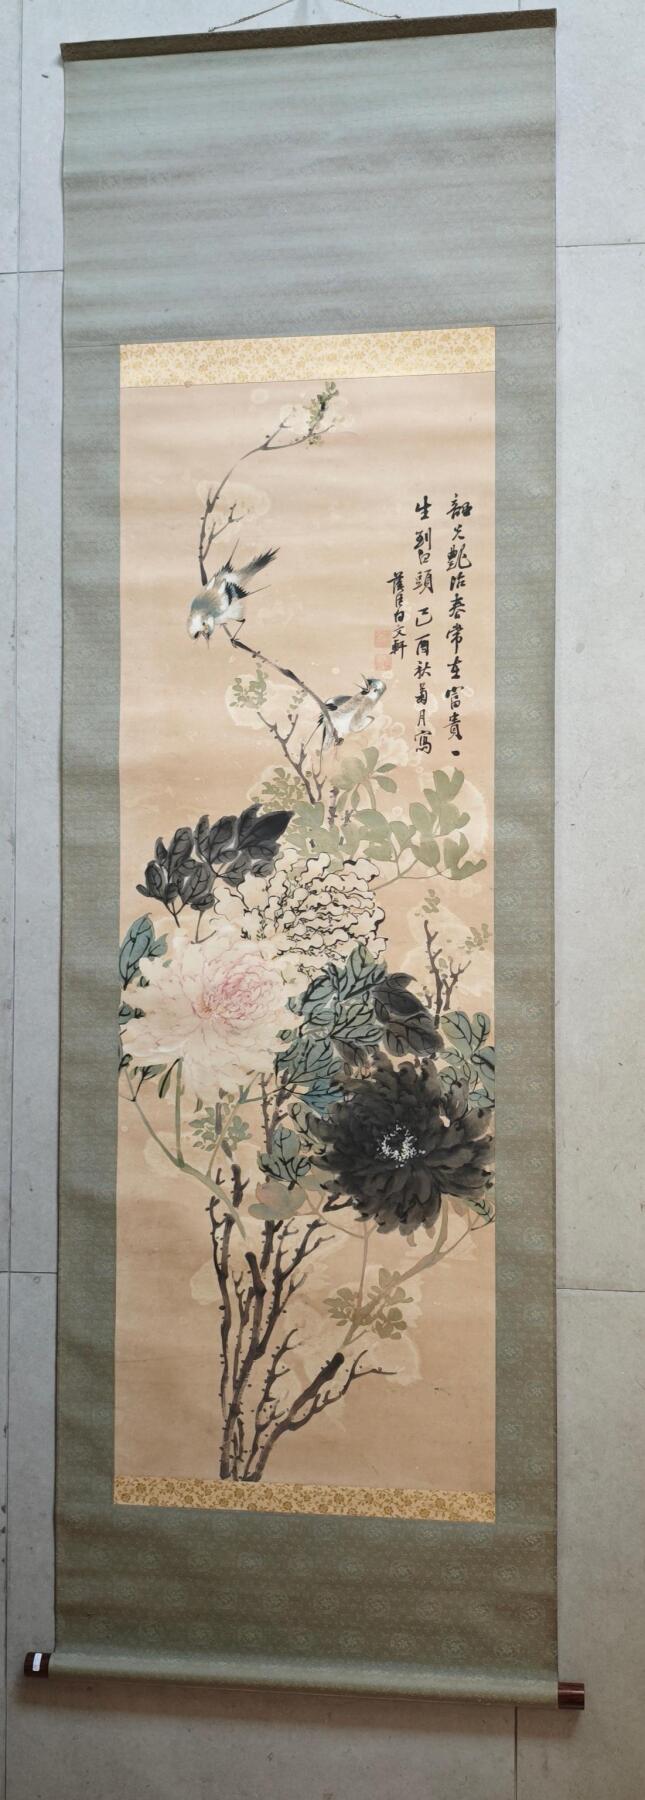 韶光艷冶春常在富貴一
生到白頭 己酉秋菊月寫
白文軒